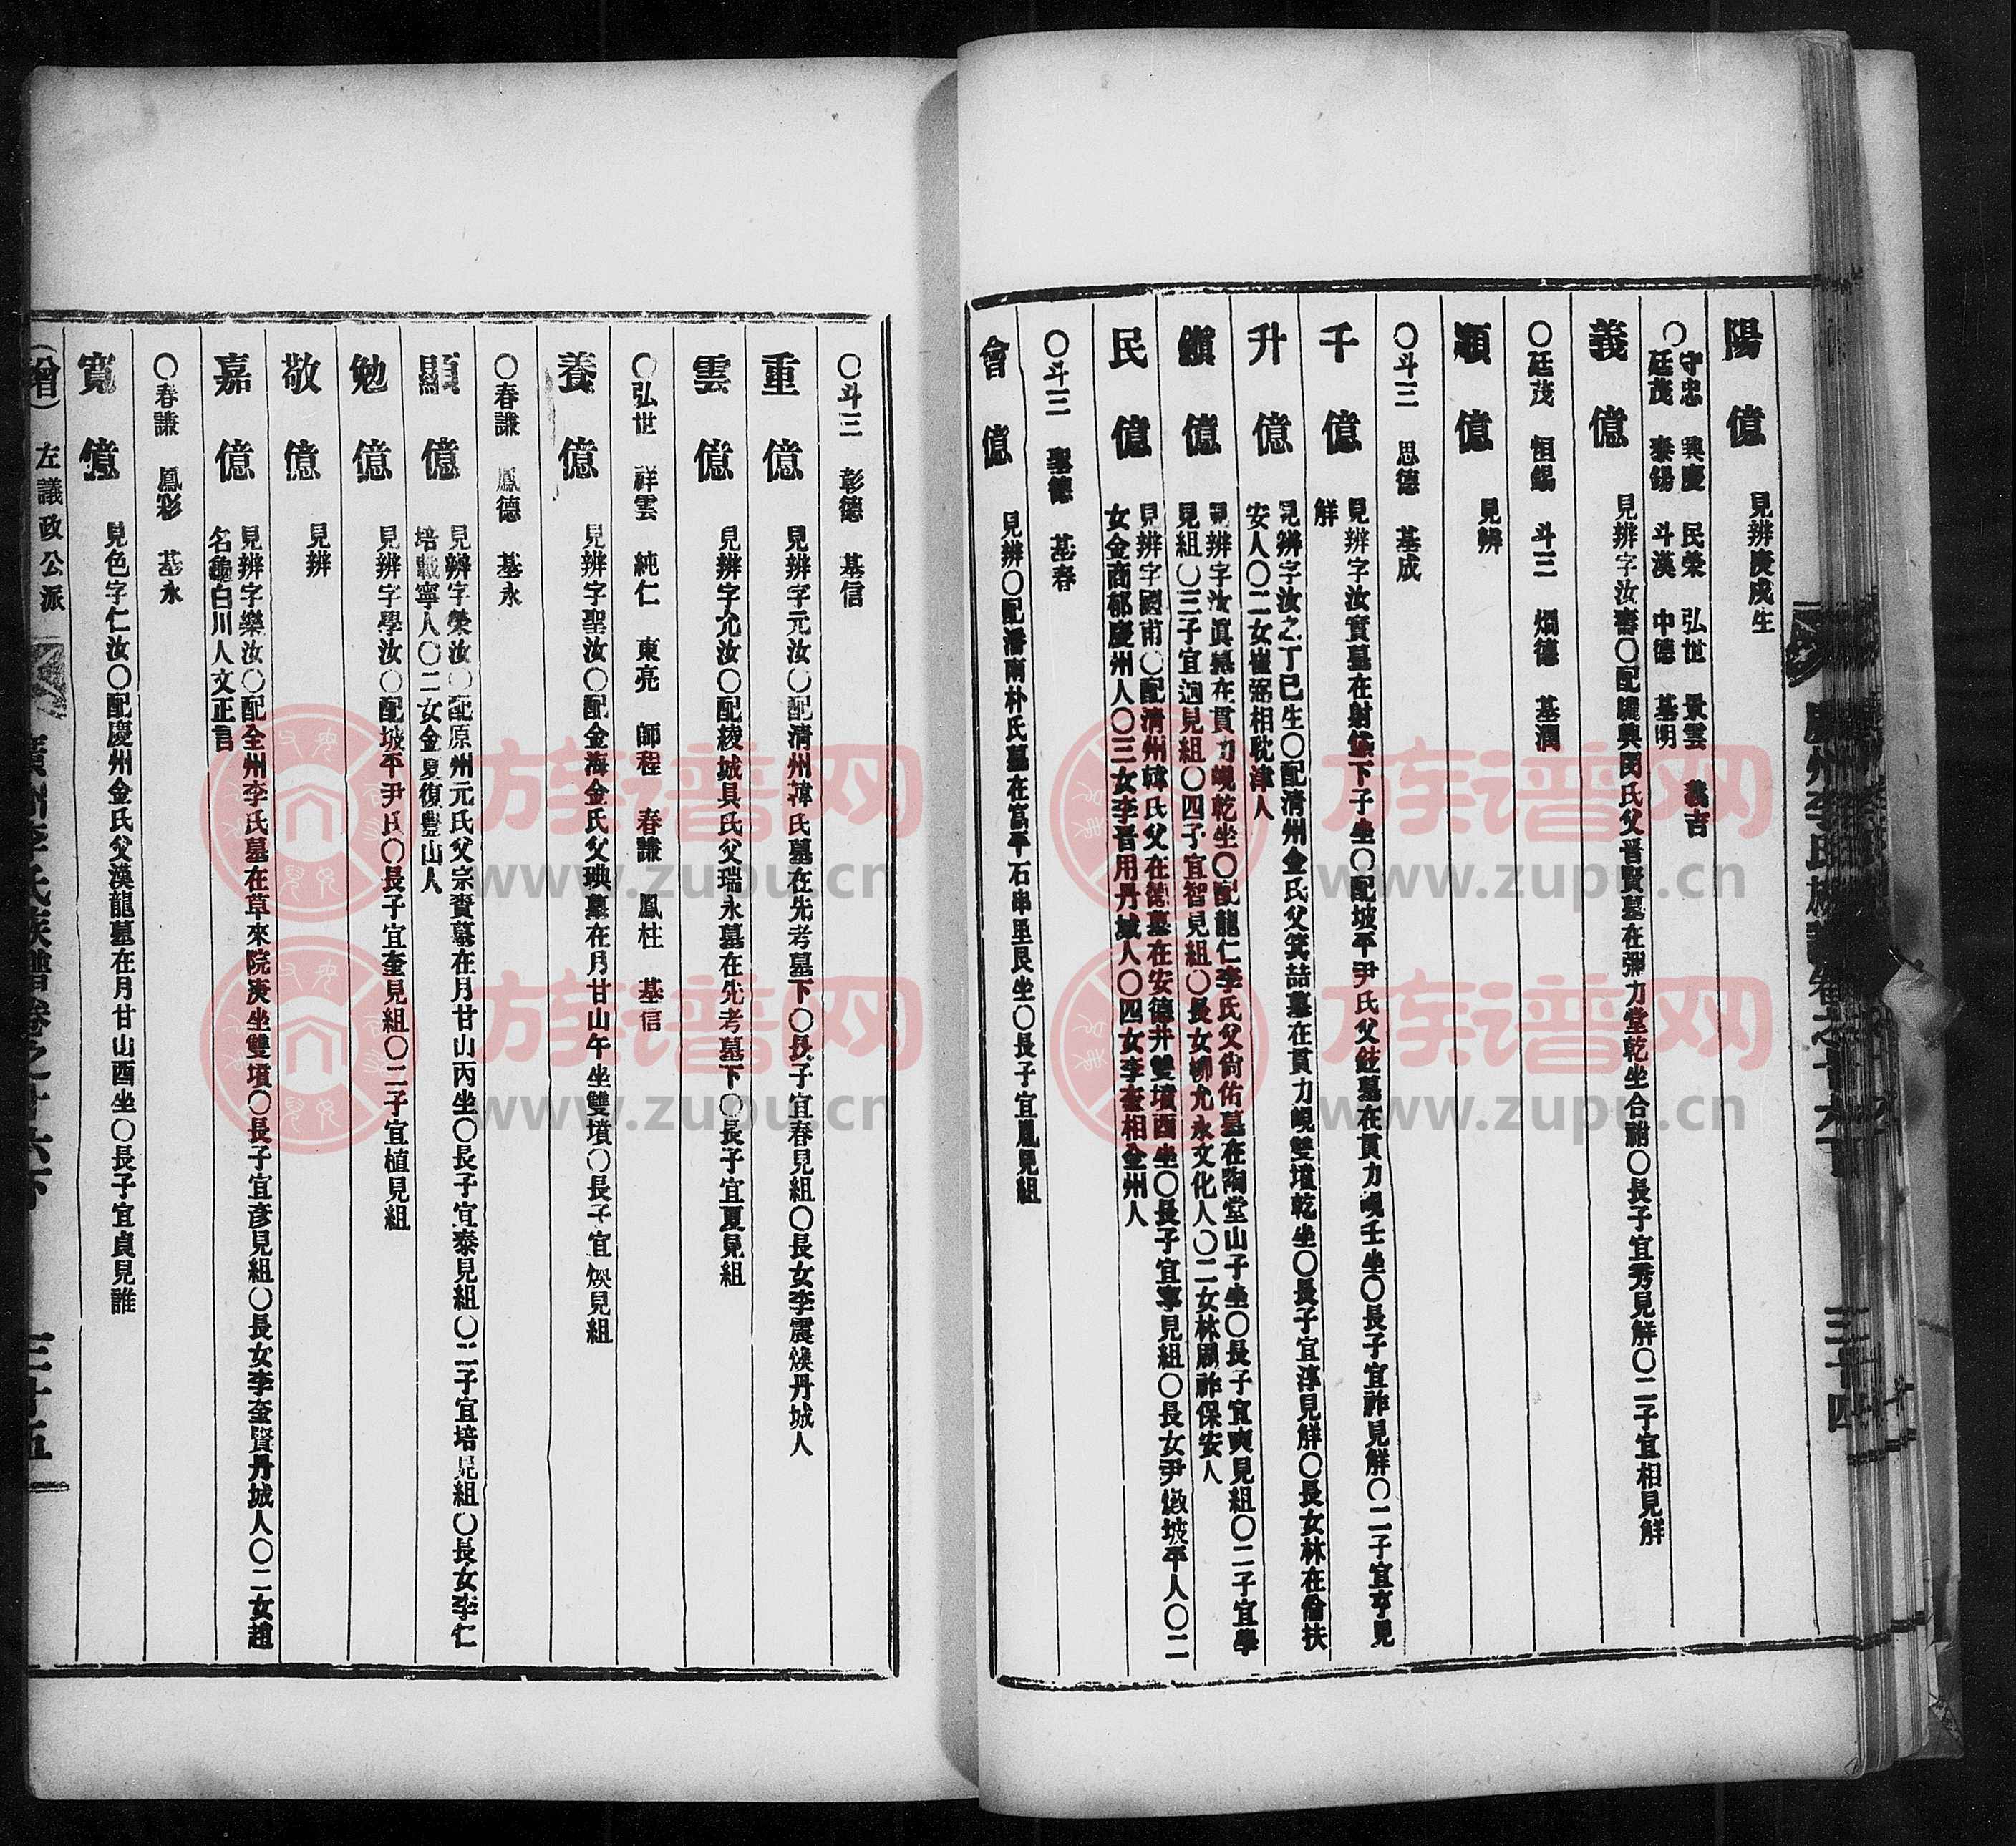 陽億 見辨庚戌生
○守忠 興慶 民榮 弘世 景雲 義吉
廷茂 泰錫 斗漢 中德 基明
義億 見辨字汝壽○配驪興閔氏父晋賢墓在彌力堂乾坐合祔○長子宜秀見觧○二子宜相見觧
○廷茂 恒錫 斗三 烱德 基潤
顯億 見辨
○斗三 思德 基成
千億 見辨字汝實墓在射堡下子坐○配坡平尹氏父鉉墓在貫力峴壬坐○長子宜祚見觧○二子宜亨見
觧
升億 見辨字汝之丁巳生○配清州金氏父箕喆墓在貫力峴雙墳乾坐○長子宜淳見觧○長女林在倫扶
安人○二女崔弼相耽津人
鎭億 見辨字汝眞墓在貫力峴乾坐○配龍仁李氏父尙佑墓在陶堂山子坐○長子宜奭見組○二子宜學
見組○三子宜迥見組○四子宜智見組○長女柳允永文化人○二女林周祚保安人
民億 見辨字國甫○配清州韓氏父在德墓在安德井雙墳酉坐○長子宜寧見組○長女尹燉坡平人○二
女金商郁慶州人○三女李晋用丹城人○四女李奎相全州人
○斗三 聖德 基春
會億 見辨○配潘南朴氏墓在富平石串里艮坐○長子宜鳳見組
三十四
○斗三 彰德 基信
重億 見辨字元汝○配清州韓氏墓在先考墓下○長子宜春見組○長女李震煥丹城人
雲億 見辨字允汝○配綾城具氏父瑞永墓在先考墓下○長子宜夏見組
○弘世 祥雲 純仁 東亮 師程 春謙 鳳柱 基信
養億 見辨字聖汝○配金海金氏父㻴墓在月甘山午坐雙墳○長子宜煥見組
○春謙 鳳德 基永
顯億 見辨字榮汝○配原州元氏父宗賚墓在月甘山丙坐○長子宜泰見組○二子宜培見組○長女李仁
培載寧人○二女金夏復豐山人
勉億 見辨字學汝○配坡平尹氏○長子宜奎見組○二子宜植見組
敬億 見辨
嘉億 見辨字樂汝○配全州李氏墓在草來院庚坐雙墳○長子宜彥見組○長女李奎賢丹城人○二女趙
名龜白川人文正言
○春謙 鳳彩 基永
寬億 見色字仁汝○配慶州金氏父漢龍墓在月甘山酉坐○長子宜貞見誰
(增) 左議政公派
三十五
族谱网
www.zupu.cn
族谱网
www.zupu.cn
族谱网
www.zupu.cn
族谱网
www.zupu.cn